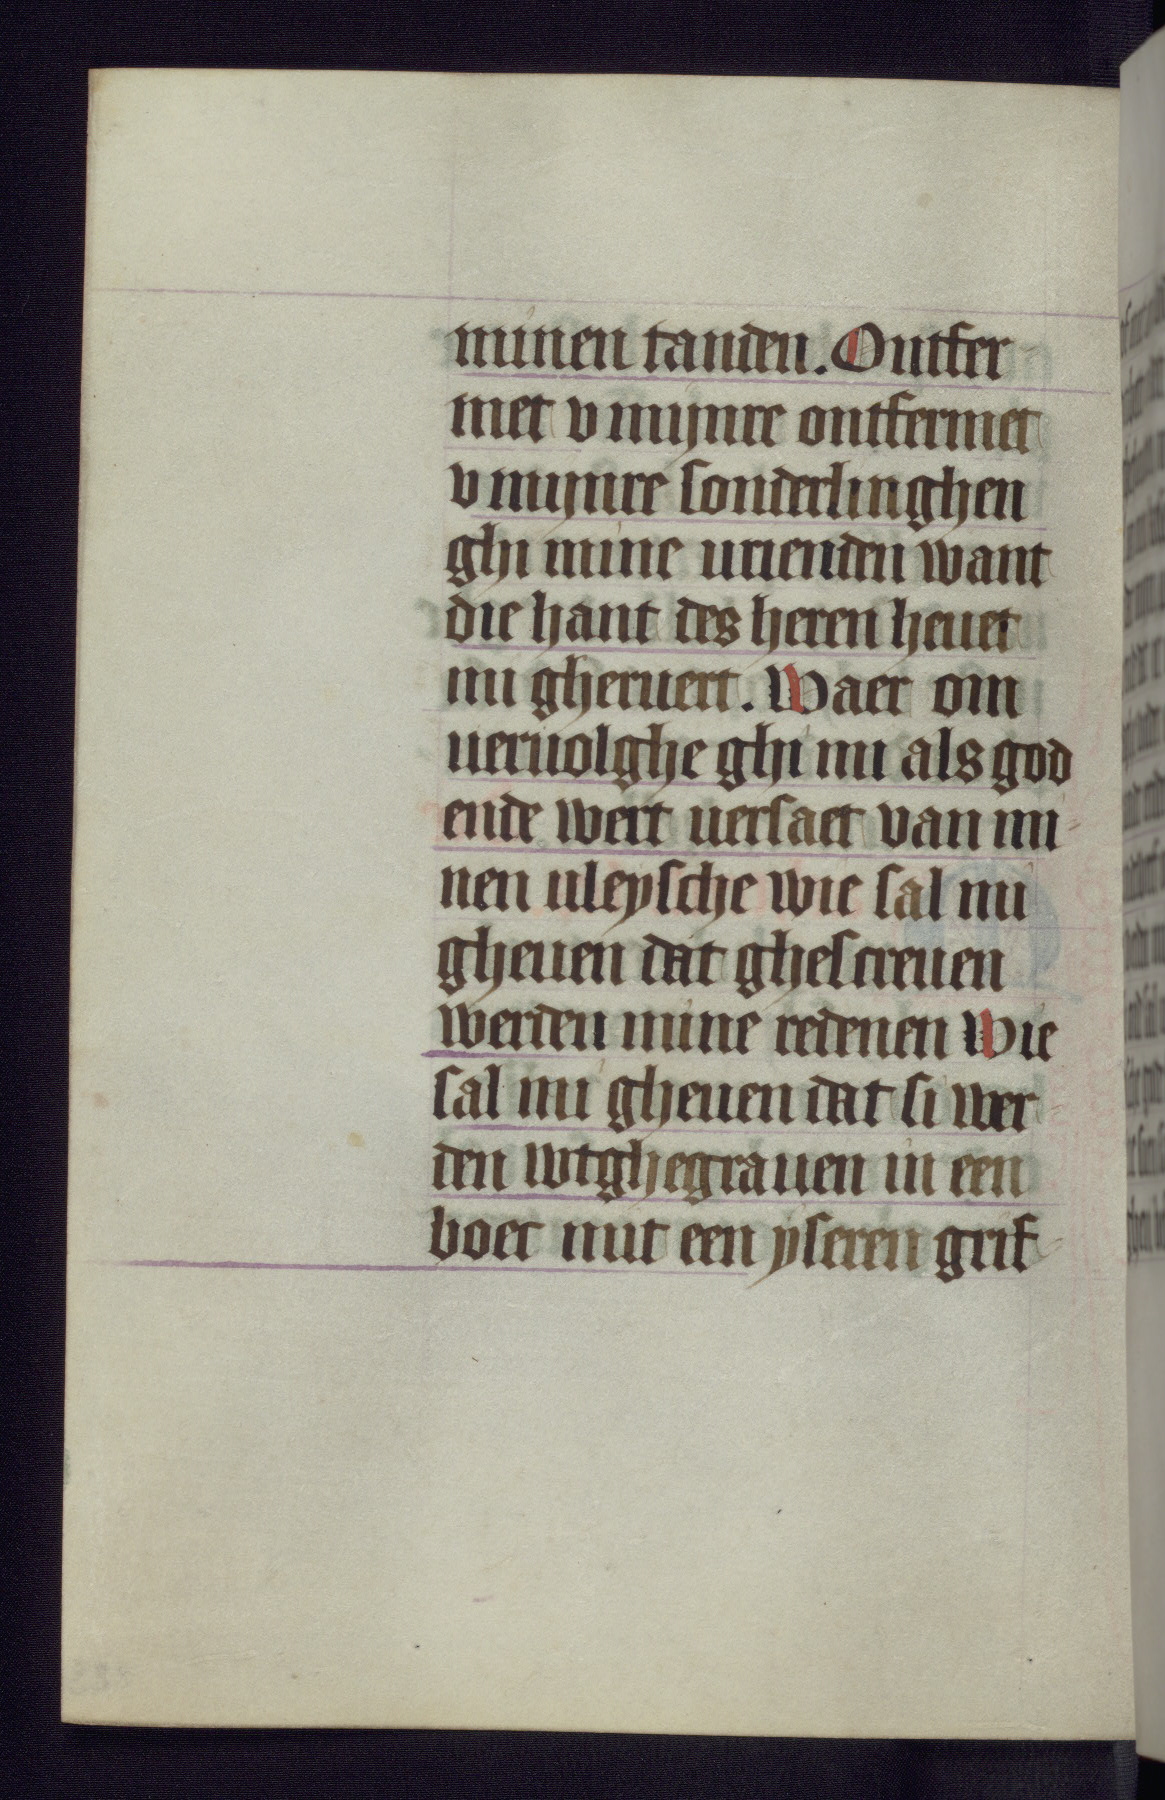 minen tanden. Ontfer
met v mijnre ontfermet
v mijnre sonderlinghen
ghi mine urienden want
die hant des heren heuet
mi gheruert. Waer om
ueruolghe ghi mi als god
ende wert uersaet van mi
nen uleysche wie sal mi
gheuen dat ghescreuen
werden mine redenen Wie
sal mi gheuen dat si wer
den wtghegrauen in een
boec mit een yseren grif